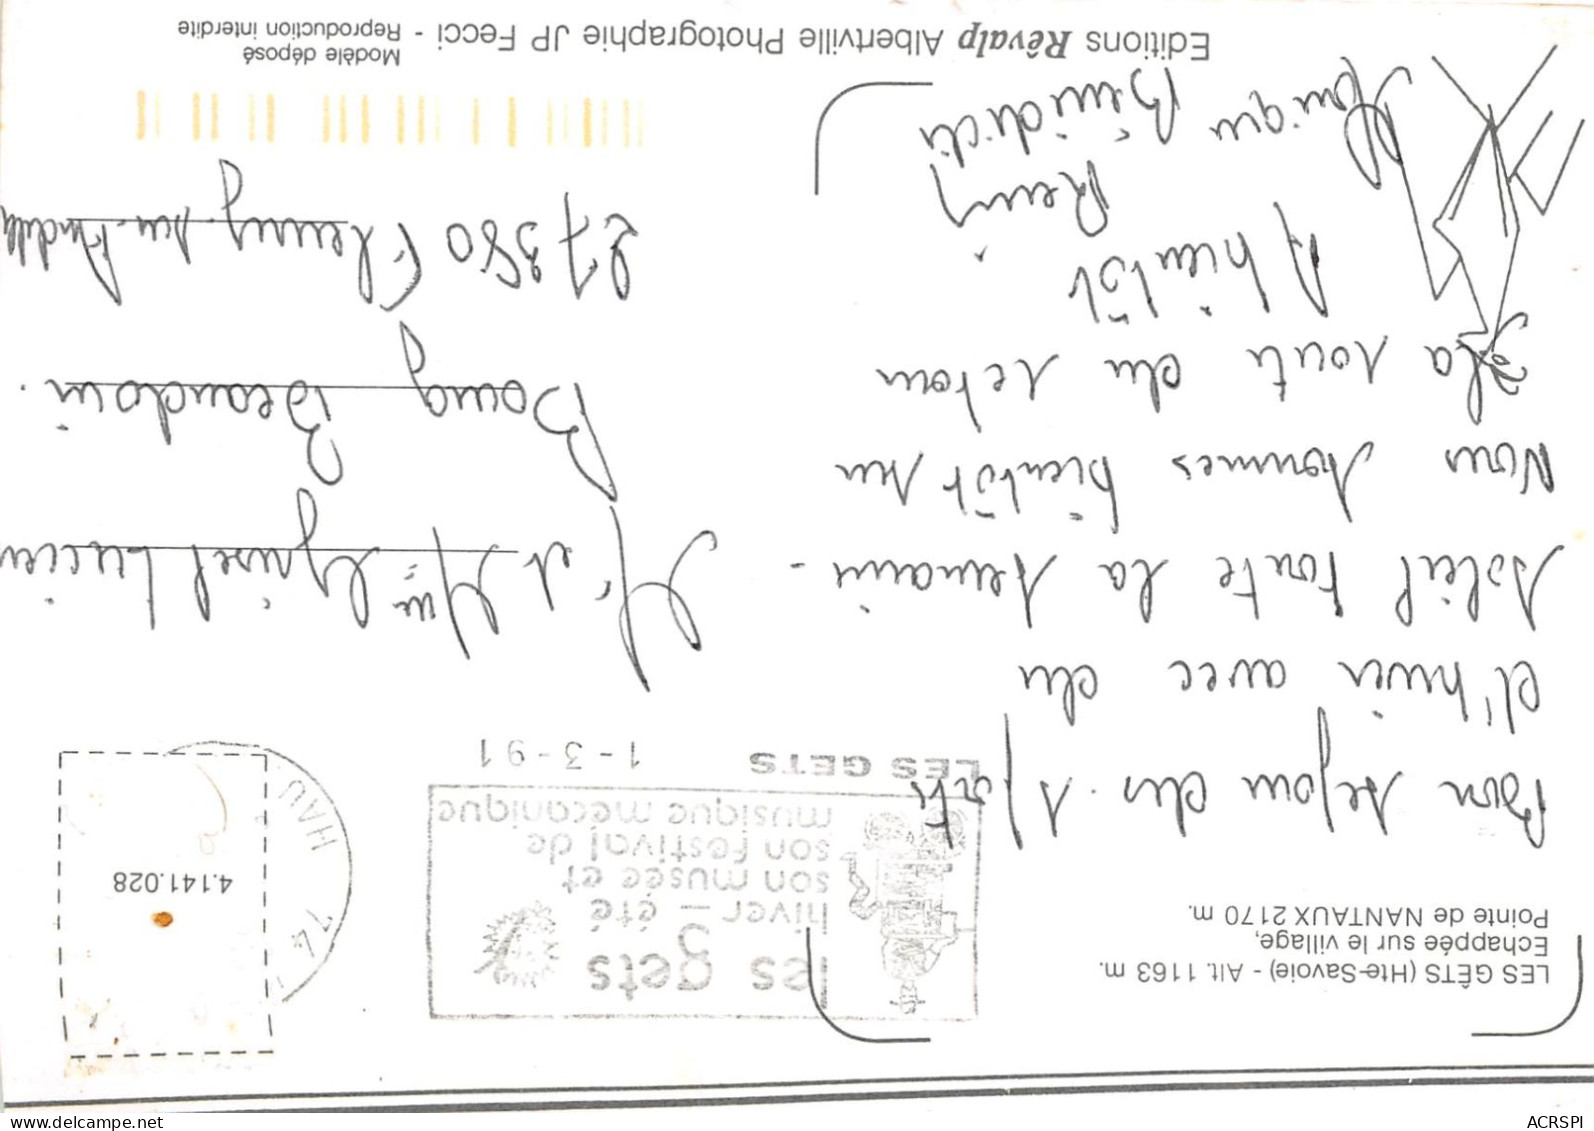 LES GÊTS (Hte-Savoie) - Alt. 1163 m.
Echappée sur le village,
Pointe de NANTAUX 2170 m.
les gets
hiver - été
son musée et
son festival de
musique mécanique
LES GETS
1-3-91
74
HAU
4.141.028
Bon séjour des
d'hiver avec du
soleil toute la semaine -
Nous sommes bientôt sur
la route du retour
A bientôt
Rémy
Monique Bénédicte
Mr et Mme Lucien
Bourg Beaudoin.
27380 Fleury sur Andelle
Editions Rêvalp Albertville Photographie JP Fecci - Reproduction interdite
Modèle déposé
ACRSPI